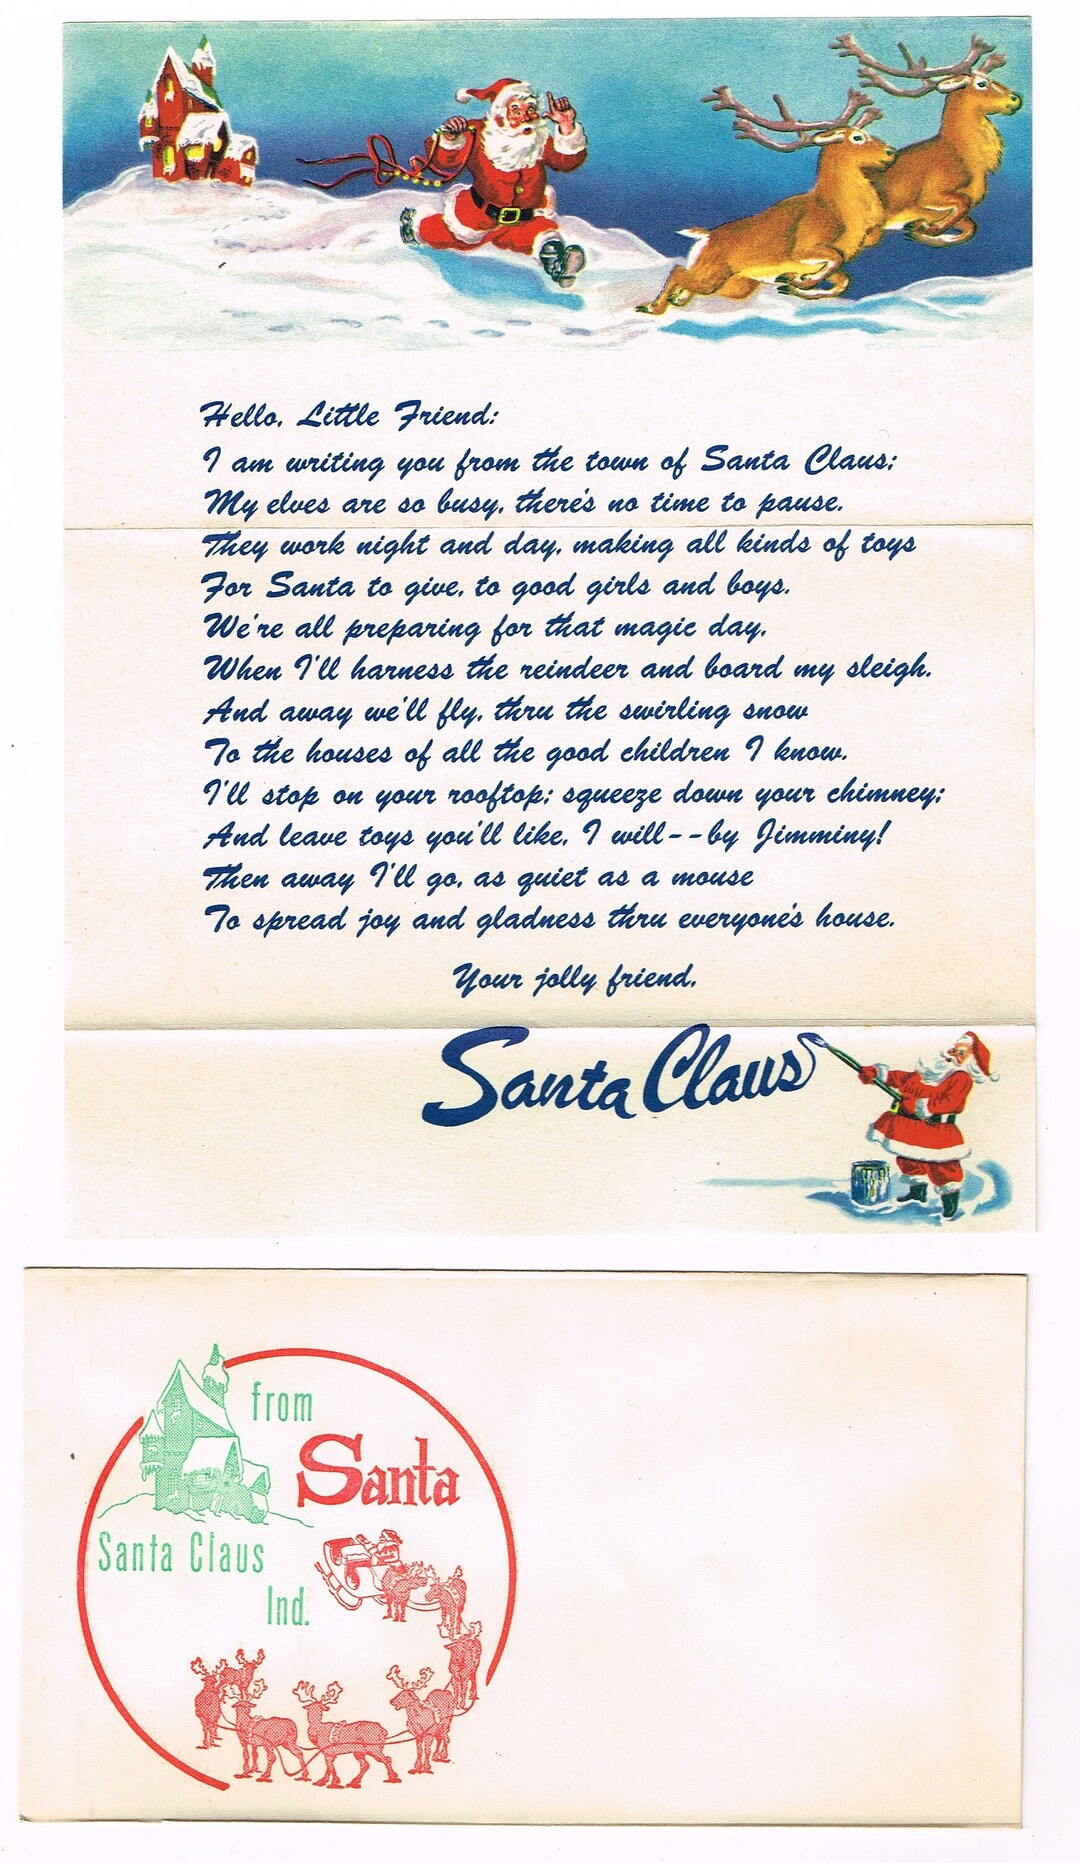 Hello, Little Friend:
I am writing you from the town of Santa Claus;
My elves are so busy, there's no time to pause.
They work night and day, making all kinds of toys
For Santa to give, to good girls and boys.
We're all preparing for that magic day,
When I'll harness the reindeer and board my sleigh.
And away we'll fly, thru the swirling snow
To the houses of all the good children I know.
I'll stop on your rooftop; squeeze down your chimney;
And leave toys you'll like, I will--by Jimminy!
Then away I'll go, as quiet as a mouse
To spread joy and gladness thru everyone's house.
Your jolly friend,
Santa Claus
from
Santa
Santa Claus
Ind.